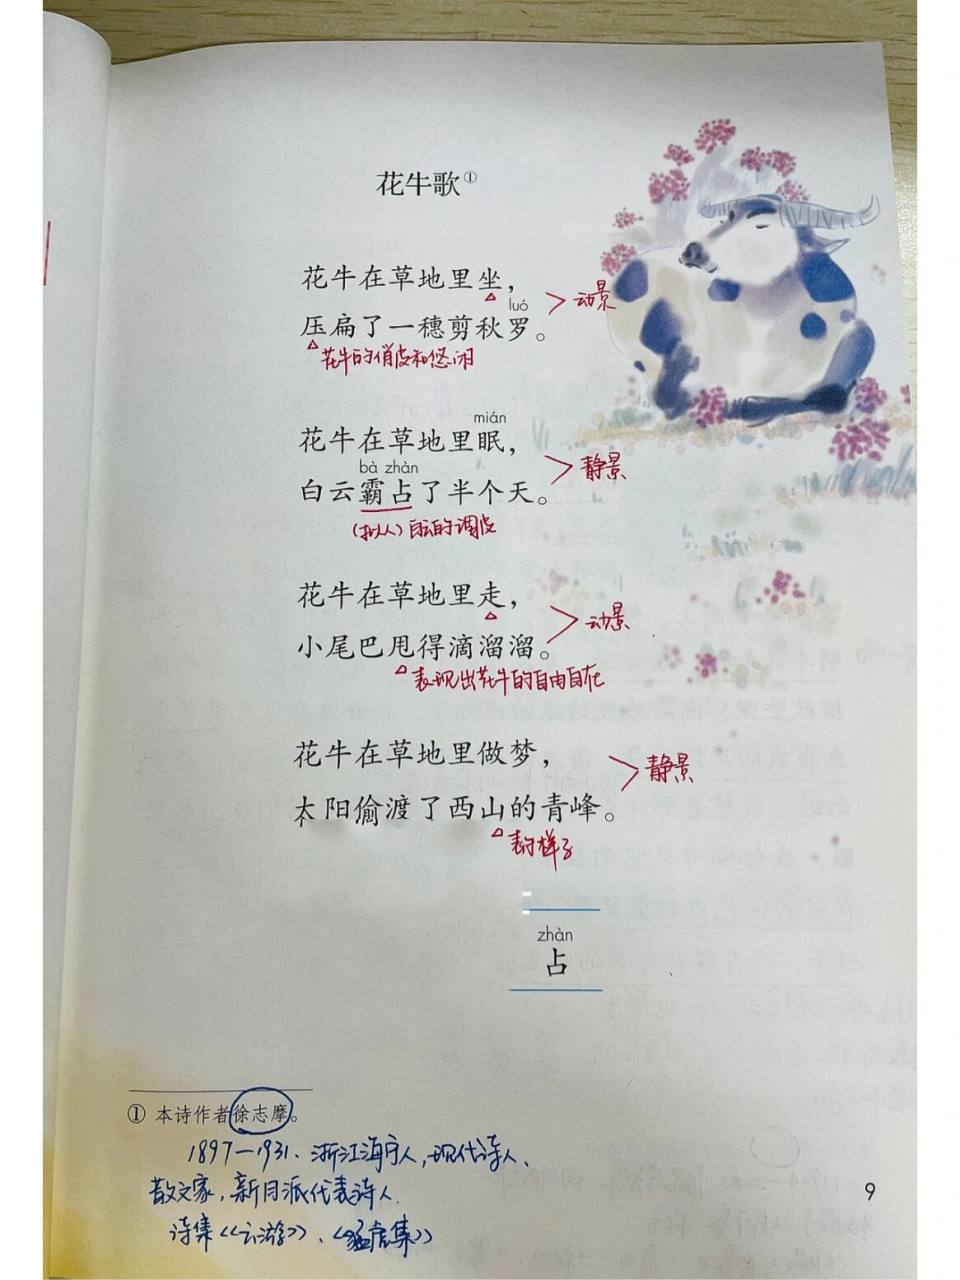 花牛歌①
花牛在草地里坐，
动景
luó
压扁了一穗剪秋罗。
花牛的俏皮和悠闲
mián
花牛在草地里眠，
静景
bà zhàn
白云霸占了半个天。
（拟人）白云的调皮
花牛在草地里走，
动景
小尾巴甩得滴溜溜。
表现出花牛的自由自在
花牛在草地里做梦，
静景
太阳偷渡了西山的青峰。
样子
zhàn
占
① 本诗作者徐志摩。
1897—1931. 浙江海宁人，现代诗人、
散文家，新月派代表诗人.
诗集《云游》、《猛虎集》
9